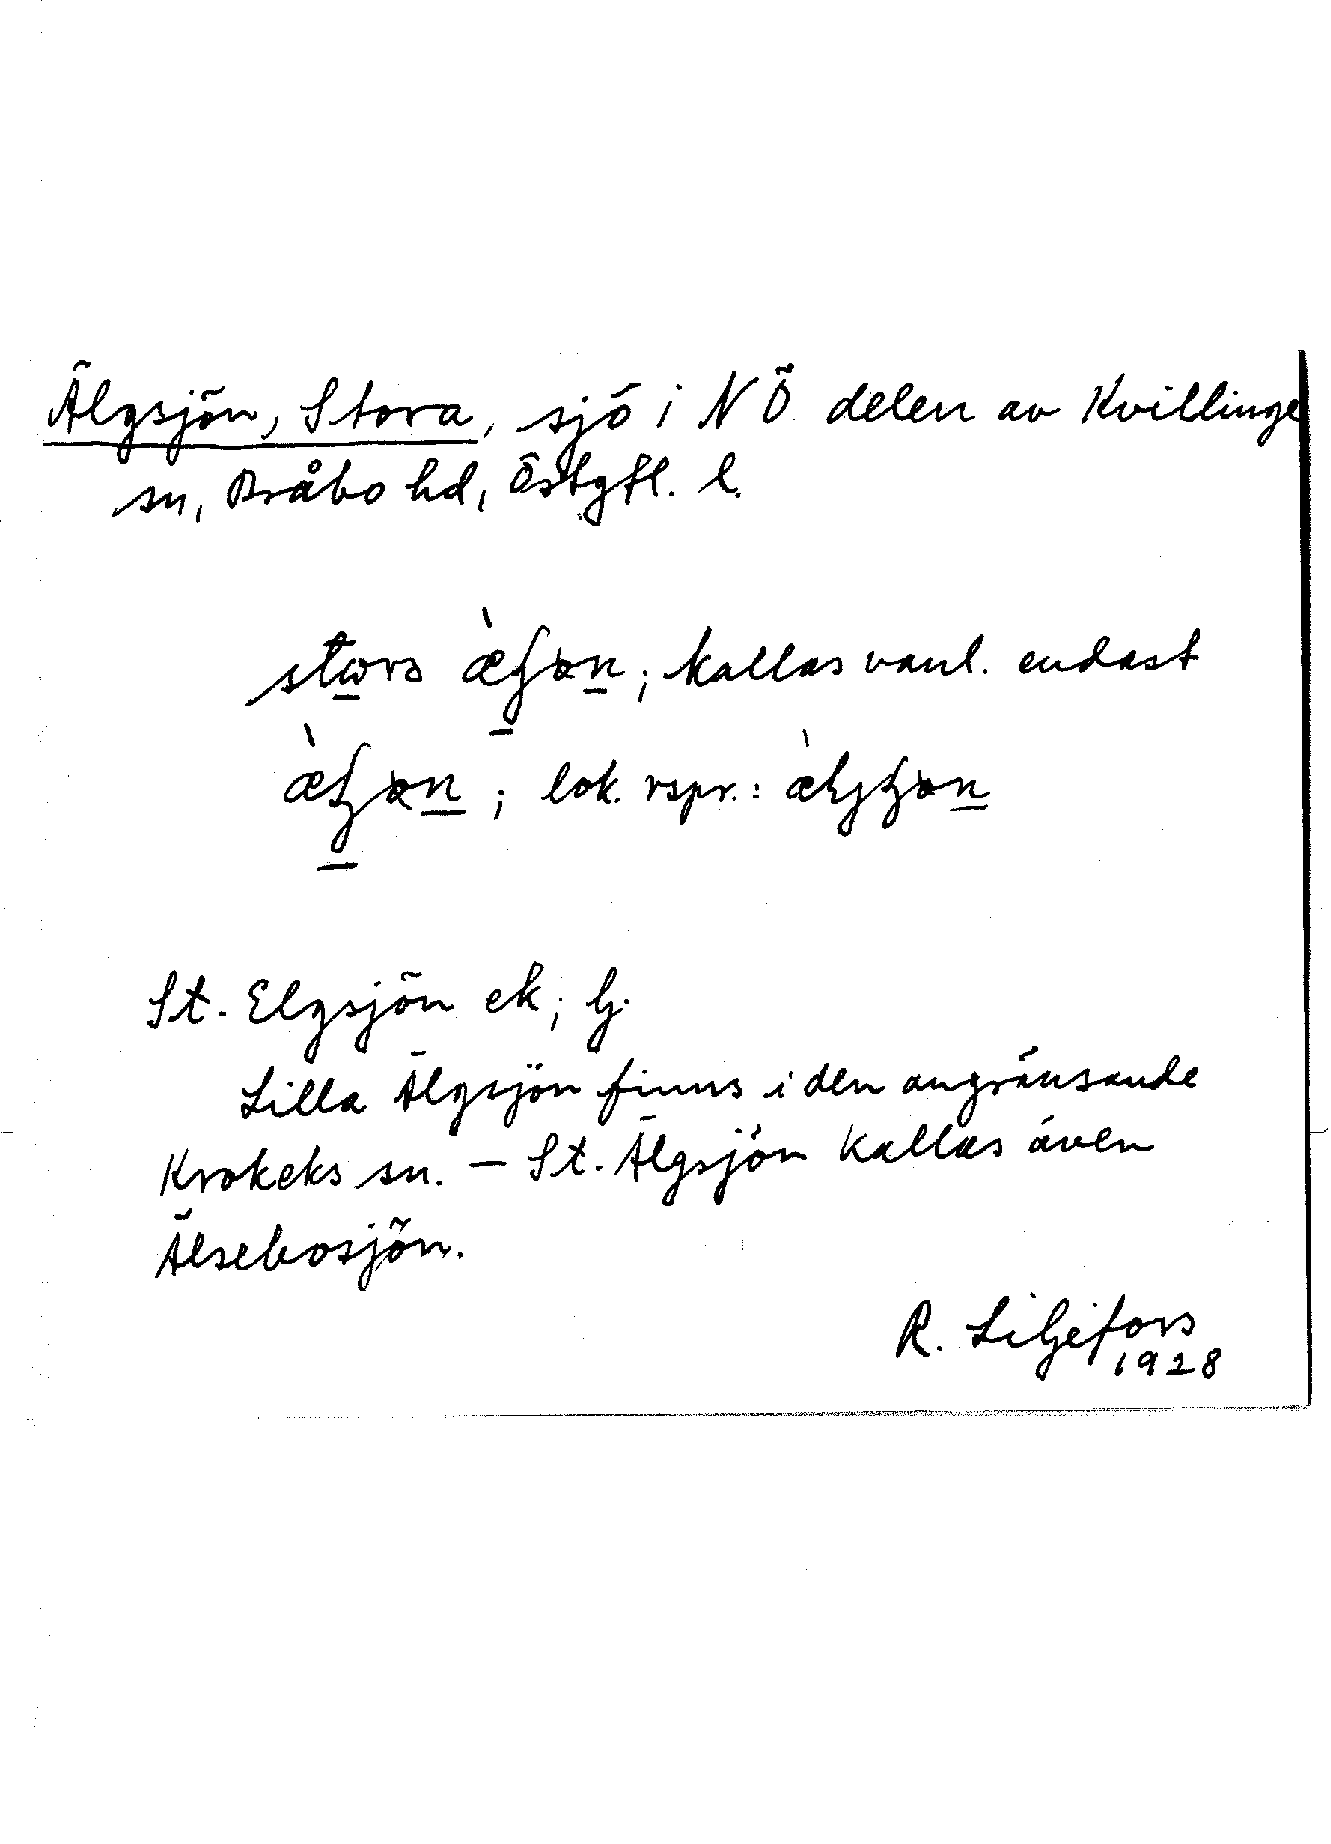 Älgsjön, Stora, sjö i NÖ delen av Kvillinge
sn, Bråbo hd, Östgtl. l.
; kallas vanl. endast
; lok. rspr.:
St. Elgsjön ek; lj.
Lilla Älgsjön finns i den angränsande
Krokeks sn. – St. Älgsjön kallas även
Älsebosjön.
R. Liljefors
1928